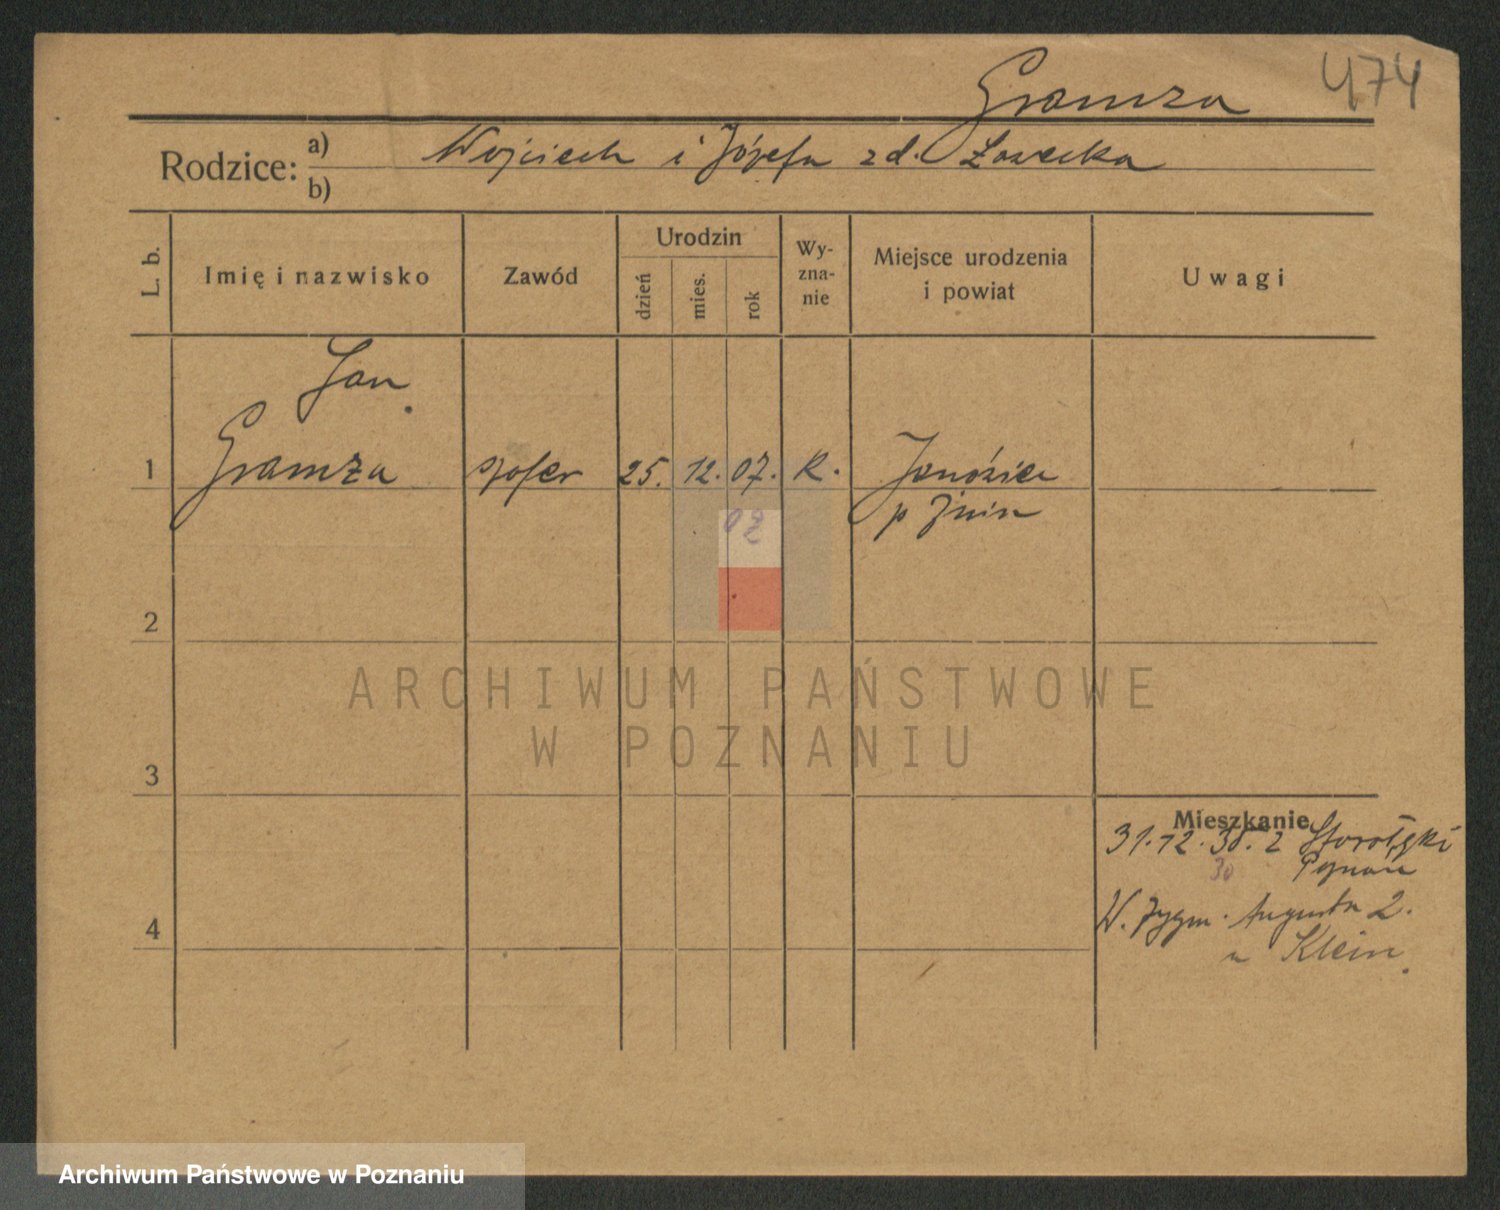 474
Gramza
Rodzice: a) Wojciech i Józefa zd. Ławecka
b)
L. b.
Imię i nazwisko
Zawód
Urodzin
dzień
mies.
rok
Wy-
zna-
nie
Miejsce urodzenia
i powiat
Uwagi
Jan
1 Gramza szofer 25. 12. 07. R.
p Żnin
07
2
3
4
ARCHIWUM PAŃSTWOWE
W POZNANIU
Mieszkanie
31.12.30. z
30 Poznań
W. Zygm. Augusta 2.
u Klein.
Archiwum Państwowe w Poznaniu